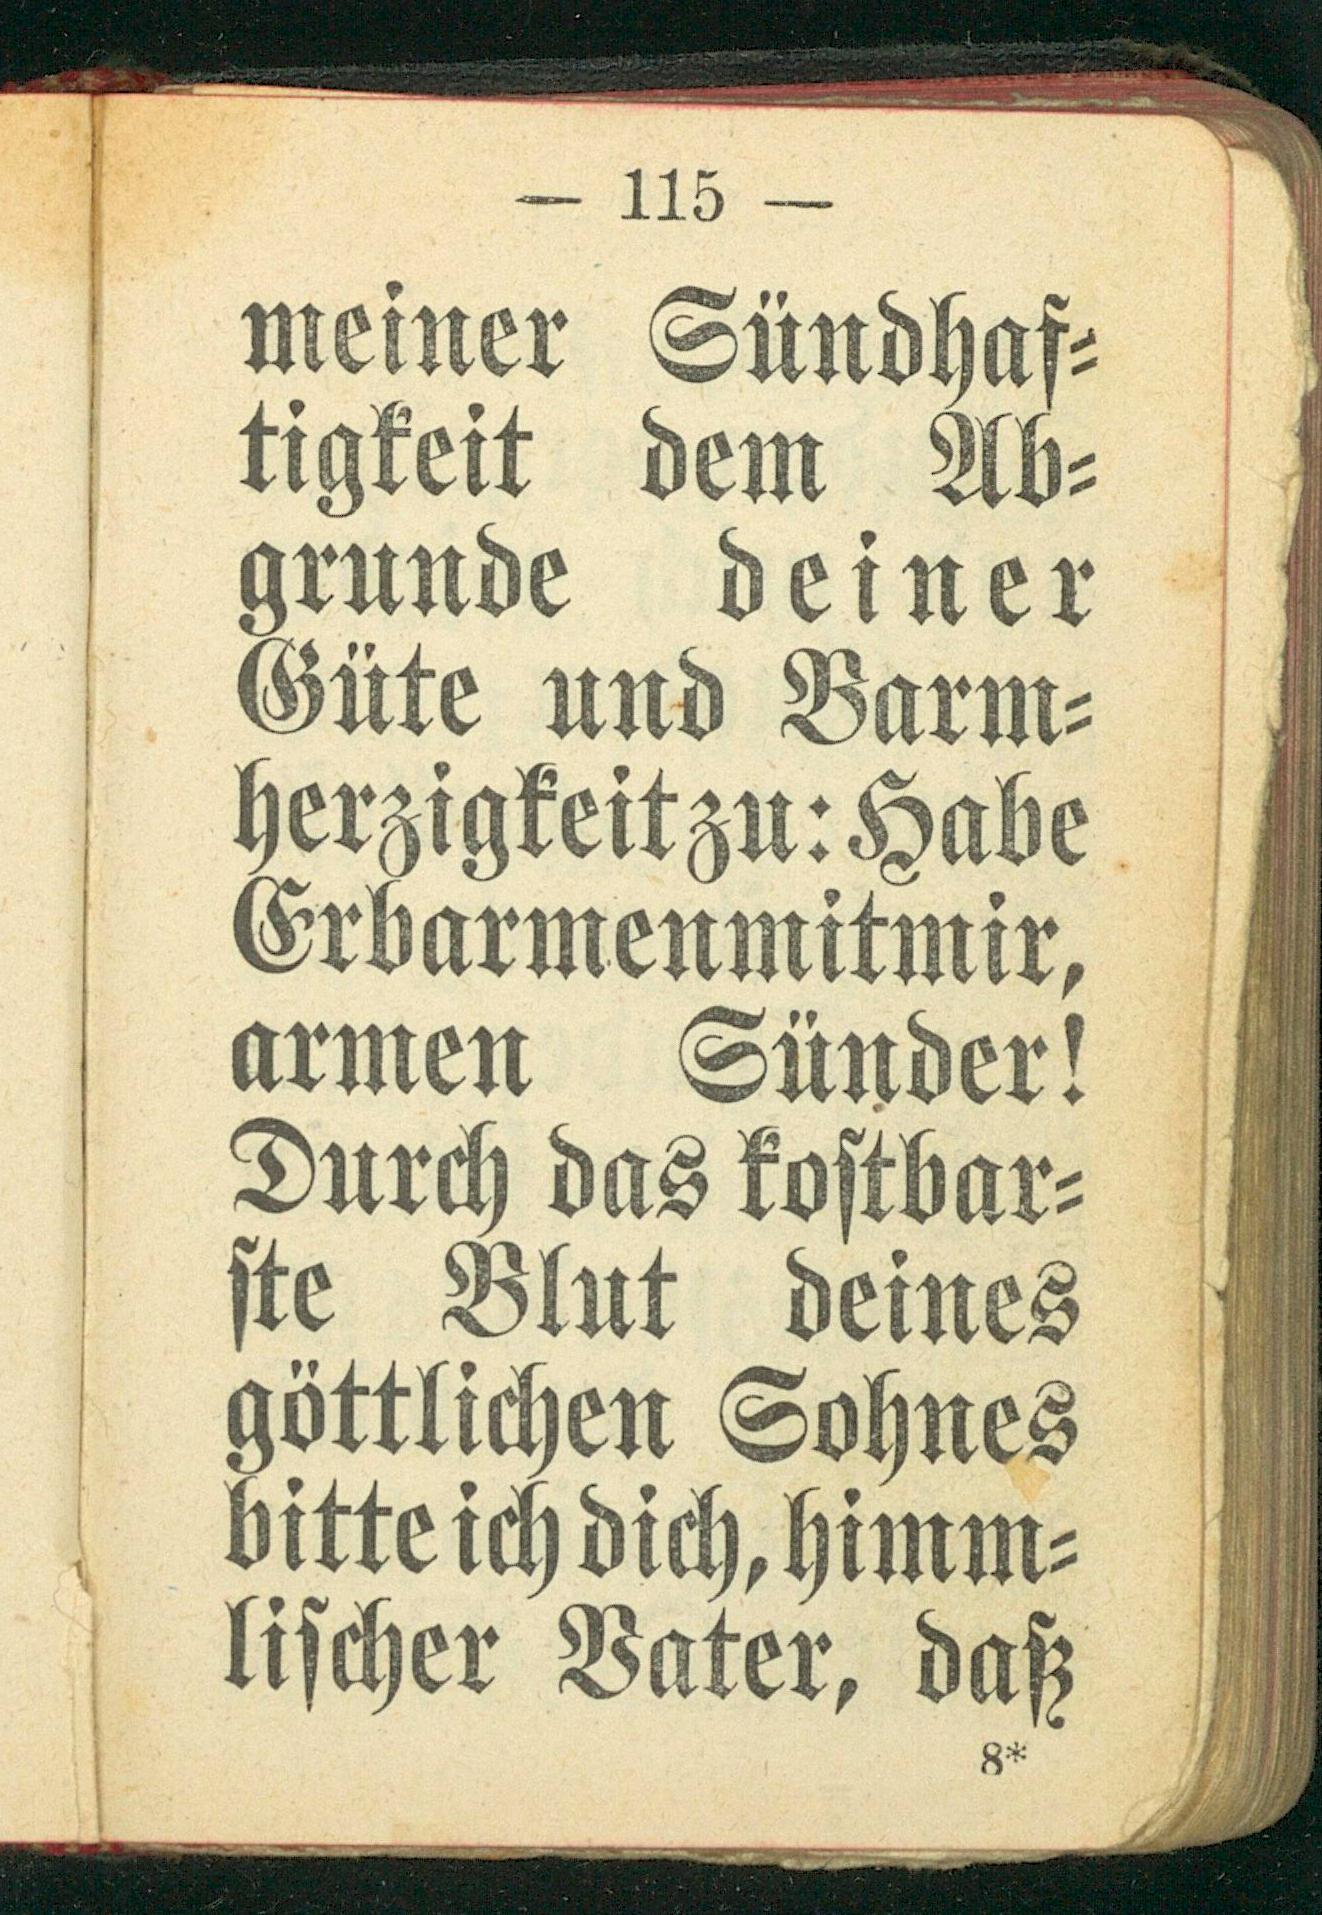 — 115 —
meiner Sündhaf⸗
tigkeit dem Ab⸗
grunde deiner
Güte und Barm⸗
herzigkeit zu: Habe
Erbarmen mit mir,
armen Sünder!
Durch das koſtbar⸗
ſte Blut deines
göttlichen Sohnes
bitte ich dich, himm⸗
liſcher Vater, daß
8*